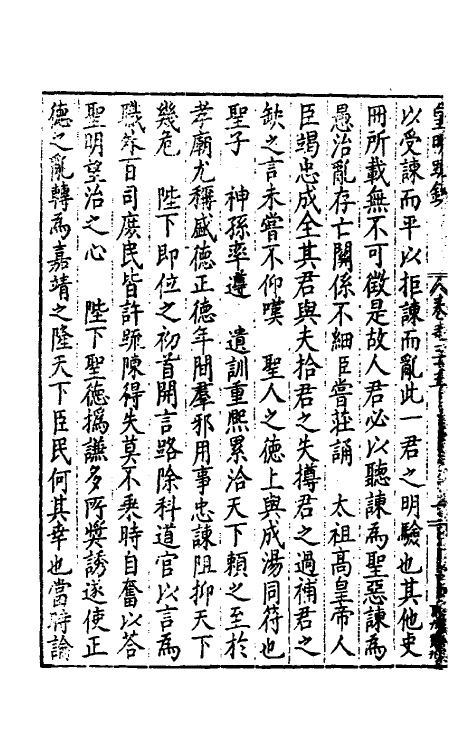 皇明疏鈔
以受諫而平以拒諫而亂此一君之明驗也其他史
冊所載無不可徵是故人君必以聽諫為聖惡諫為
愚治亂存亡關係不細臣嘗莊誦　太祖高皇帝人
臣竭忠成全其君與夫拾君之失撙君之過補君之
缺之言未嘗不仰嘆　聖人之德上與成湯同符也
聖子　神孫率遵　遺訓重熙累洽天下頼之至於
孝廟尤稱盛德正德年間羣邪用事忠諫阻抑天下
幾危　陛下即位之初首開言路除科道官以言為
職外百司庶民皆許疏陳得失莫不乘時自奮以答
聖明望治之心　陛下聖德撝謙多所奬誘遂使正
德之亂轉為嘉靖之隆天下臣民何其幸也當時論